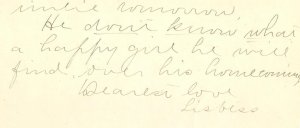 tomorrow
He don't know what
a happy girl he will
find over his homecoming
Dearest love